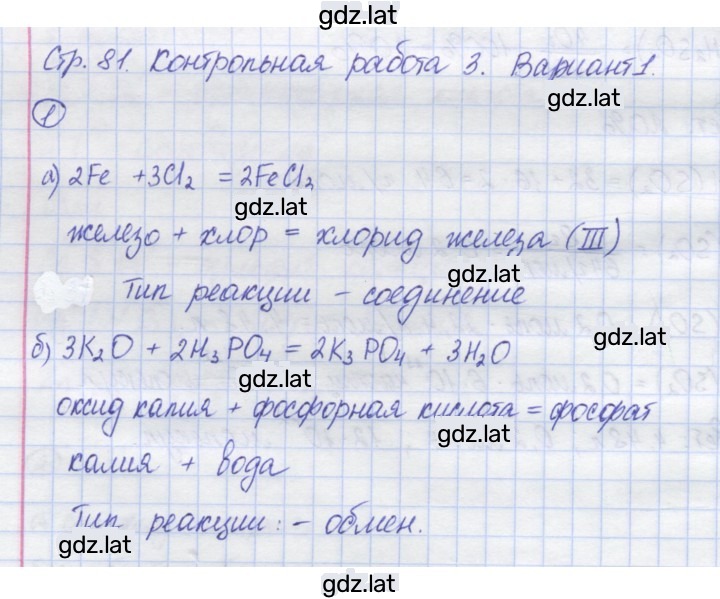 gdz.lat
Стр. 81. Контрольная работа 3. Вариант 1.
gdz.lat
1
а) 2Fe + 3Cl₂ = 2FeCl₂
gdz.lat
железо + хлор = хлорид железа (III)
gdz.lat
Тип реакции - соединение
gdz.lat
б) 3K₂O + 2H₃PO₄ = 2K₃PO₄ + 3H₂O
gdz.lat
оксид калия + фосфорная кислота = фосфат
gdz.lat
калия + вода
Тип реакции: - обмен.
gdz.lat
gdz.lat